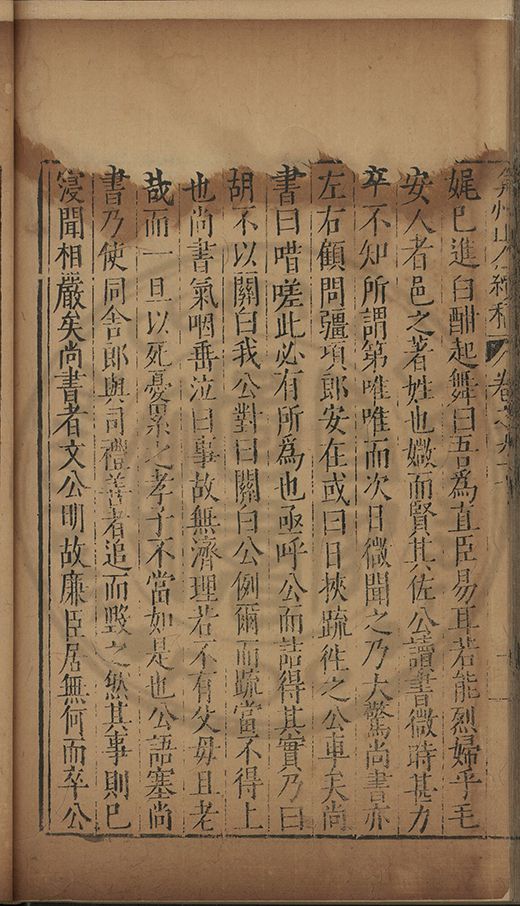 弇州山人續稿 卷之九十
娓巳進白酣起舞曰吾爲直臣易耳若能烈婦乎毛
安人者邑之著姓也媺而賢其佐公讀書微時甚力
卒不知所謂第唯唯而次日微聞之乃大驚尚書亦
左右顧問彊項郎安在或曰日挾疏徃之公車矣尚
書曰唶嗟此必有所爲也亟呼公而詰得其實乃曰
胡不以關白我公對曰關白公例爾而疏當不得上
也尚書氣咽垂泣曰事故無濟理若不有父毋且老
哉而一旦以死憂累之孝子不當如是也公語塞尚
書乃使同舍郎與司禮善者追而毀之然其事則巳
寖聞相嚴矣尚書者文公明故廉臣居無何而卒公